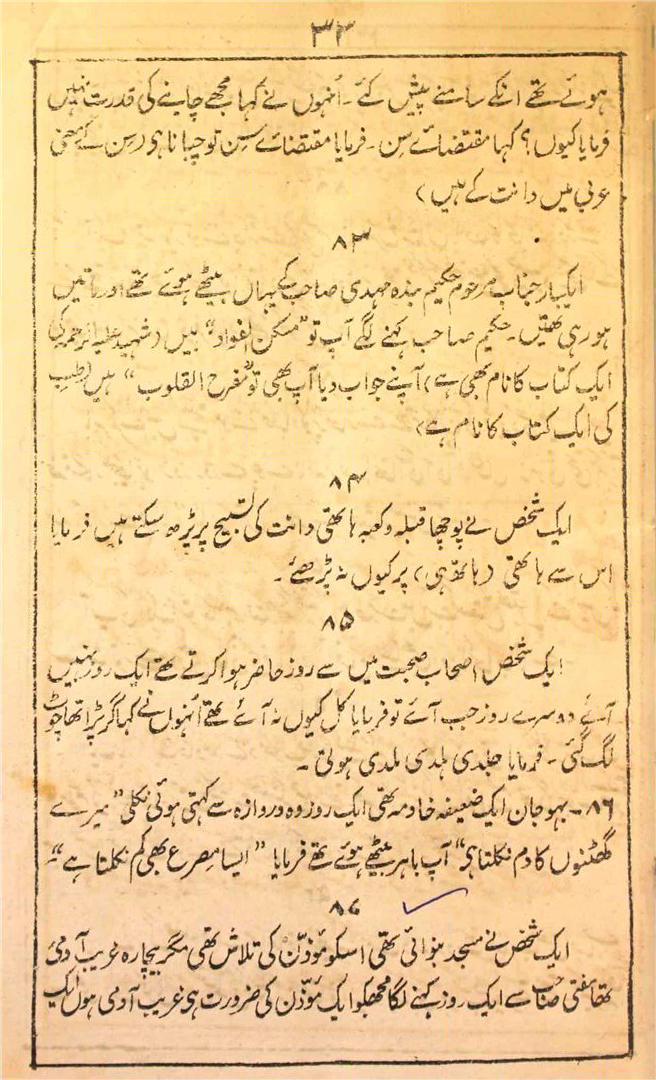 ۳۳
ہوئے تھے انکے سامنے پیش کئے۔ اُنہوں نے کہا مجھے چابنے کی قدرت نہیں
فرمایا کیوں؟ کہا مقتضائے سِن۔ فرمایا مقتضائے سِن تو چبانا ہی (سِن کے معنی
عربی میں دانت کے ہیں)
۸۳
ایکبار جناب مرحوم حکیم بندہ مہدی صاحب کے یہاں بیٹھے ہوئے تھے اور باتیں
ہو رہی تھیں۔ حکیم صاحب کہنے لگے آپ تو "مسکن الفواد" ہیں (شہید علیہ الرحمہ کی
ایک کتاب کا نام بھی ہے) آپنے جواب دیا آپ بھی تو "مفرح القلوب" ہیں (طب
کی ایک کتاب کا نام ہے)
۸۴
ایک شخص نے پوچھا قبلہ و کعبہ ہاتھی دانت کی تسبیح پر پڑھ سکتے ہیں فرمایا
اس سے ہاتھی (ہاتھ ہی) پر کیوں نہ پڑھئے۔
۸۵
ایک شخص اصحاب صحبت میں سے روز حاضر ہوا کرتے تھے ایک روز نہیں
آئے دوسرے روز جب آئے تو فرمایا کل کیوں نہ آئے تھے اُنہوں نے کہا گر پڑا تھا چوٹ
لگ گئی۔ فرمایا جلدی ہلدی ملدی ہوتی۔
۸۶۔ بہو جان ایک ضعیفہ خادمہ تھی ایک روز وہ دروازہ سے کہتی ہوئی نکلی "میرے
گھٹنوں کا دم نکلتا ہی" آپ باہر بیٹھے ہوئے تھے فرمایا "ایسا مصرع بھی کم نکلتا ہے"
۸۷
ایک شخص نے مسجد بنوائی تھی اسکو مؤذّن کی تلاش تھی مگر بیچارہ غریب آدمی
تھا مفتی صاحب سے ایک روز کہنے لگا مجھکو ایک مؤذّن کی ضرورت ہی غریب آدمی ہوں ایک